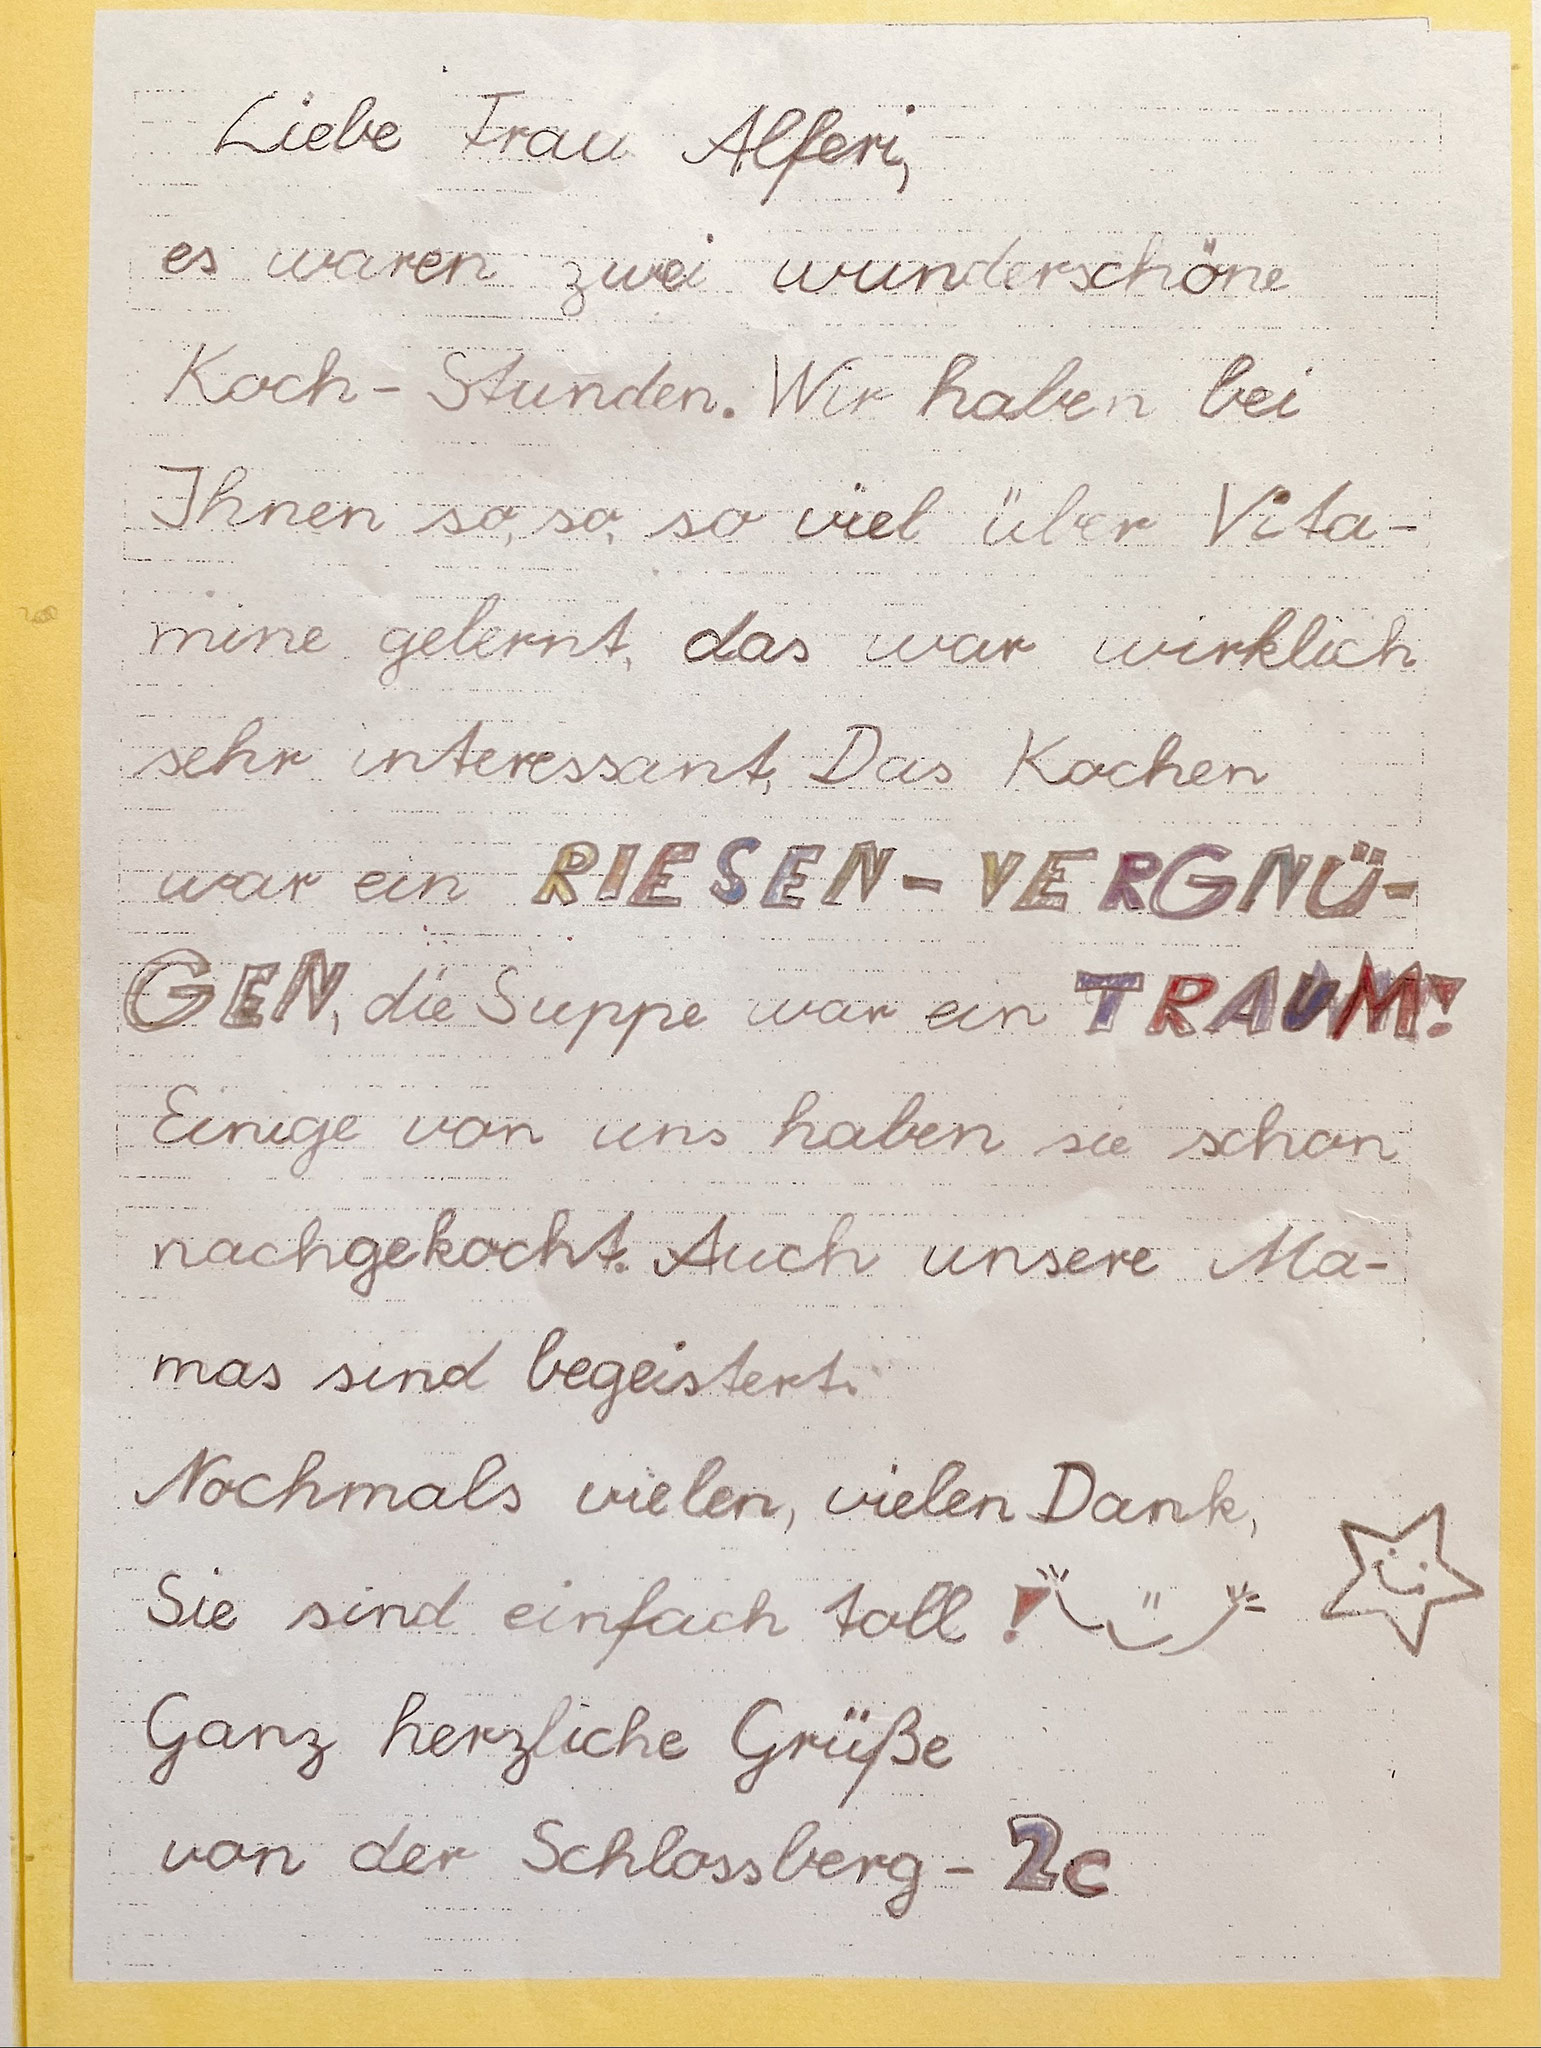 Liebe Frau Alferi,
es waren zwei wunderschöne
Koch-Stunden. Wir haben bei
Ihnen so, so, so viel über Vita-
mine gelernt, das war wirklich
sehr interessant. Das Kochen
war ein RIESEN-VERGNÜ-
GEN, die Suppe war ein TRAUM!
Einige von uns haben sie schon
nachgekocht. Auch unsere Ma-
mas sind begeistert.
Nochmals vielen, vielen Dank,
Sie sind einfach toll!
Ganz herzliche Grüße
von der Schlossberg-2c